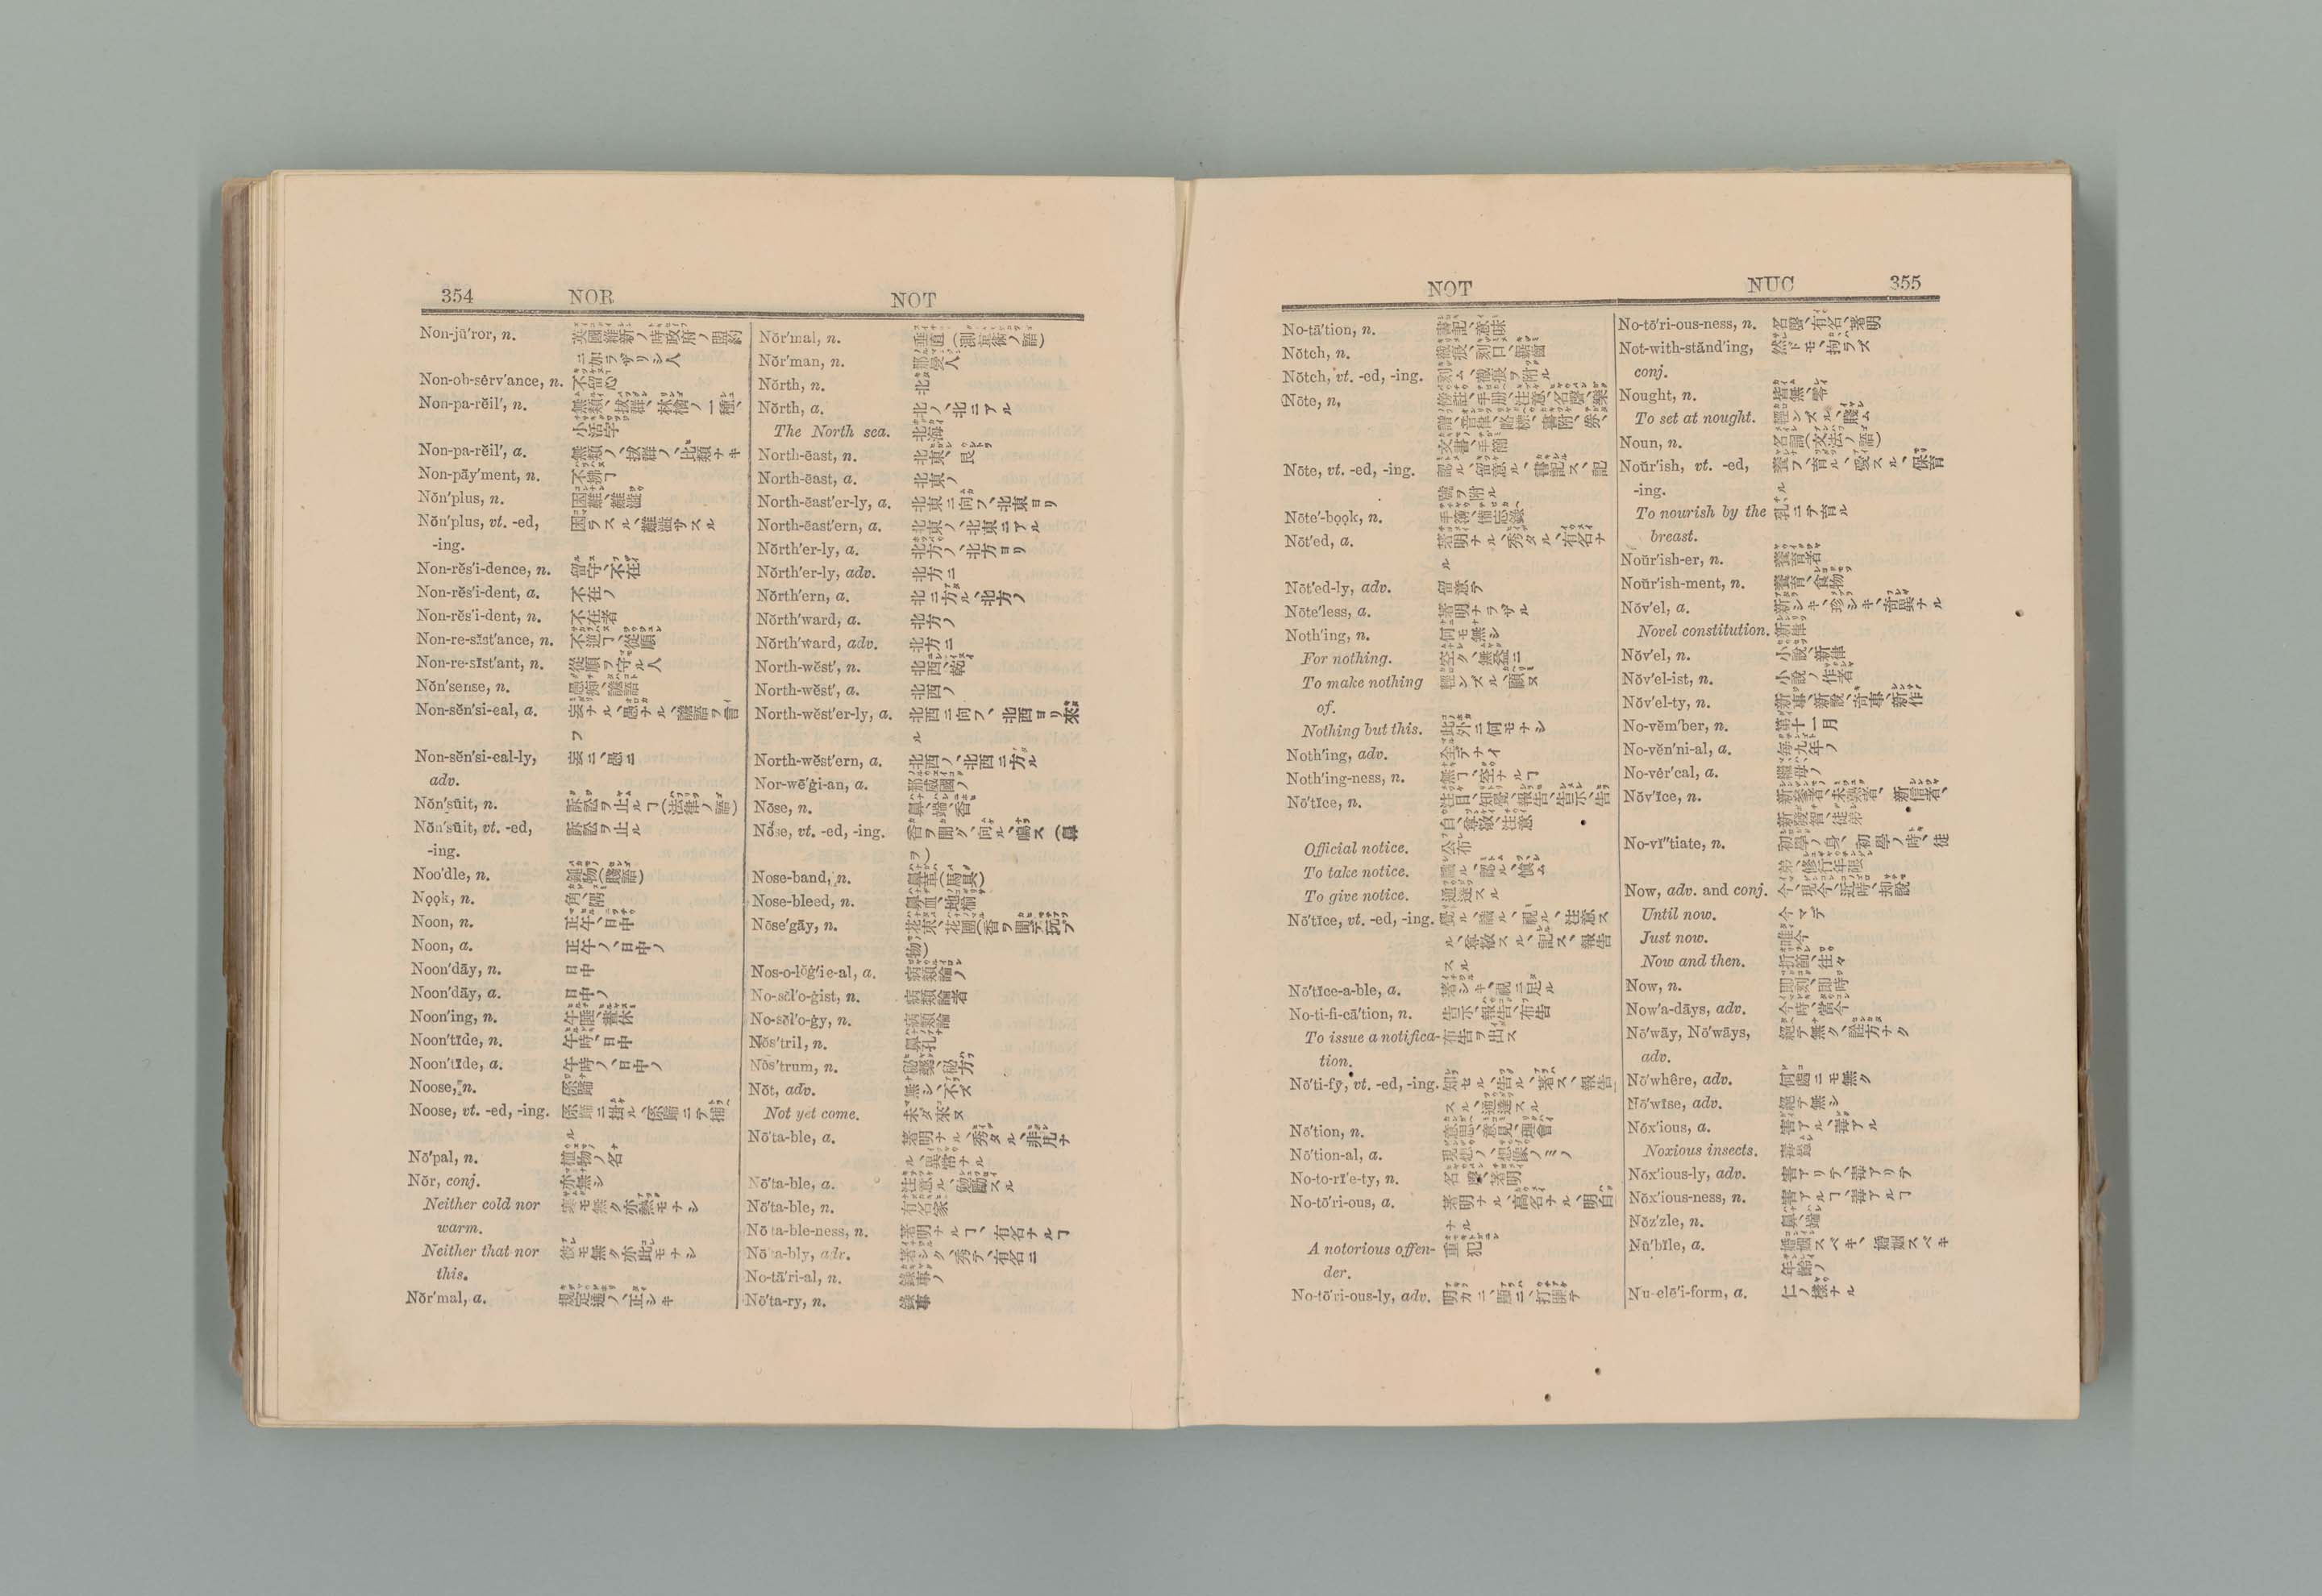 354 NOR NOT
Non-jū′ror, n. 英國維新ノ時政府ノ盟約
ニ加ラザリシ人
Non-ob-sẽrv′ance, n. 不留心
Non-pa-rĕil′, n. 無類、拔群、林檎ノ一種、
小活字
Non-pa-rĕil′, a. 無類ノ、拔群ノ、比類ナキ
Non-pāy′ment, n. 不拂了
Nŏn′plus, n. 困難、難澁
Nŏn′plus, vt. -ed, 困ラスル、難澁サスル
-ing.
Non-rĕs′i-dence, n. 留守、不在
Non-rĕs′i-dent, a. 不在ノ
Non-rĕs′i-dent, n. 不在者
Non-re-sĭst′ance, n. 不逆了、從順
Non-re-sĭst′ant, n. 從順ヲ守ル人
Nŏn′sense, n. 愚痴、譫語
Non-sĕn′si-eal, a. 妄ナル、愚ナル、譫語ヲ言
フ
Non-sĕn′si-eal-ly, 妄ニ、愚ニ
adv.
Nŏn′sūit, n. 訴訟ヲ止ルヿ(法律ノ語)
Nŏn′sūit, vt. -ed, 訴訟ヲ止ル
-ing.
Noo′dle, n. 鈍物(賤語)
Nọọk, n. 角、隅
Noon, n. 正午、日中
Noon, a. 正午ノ、日中ノ
Noon′dāy, n. 日中
Noon′dāy, a. 日中ノ
Noon′ing, n. 午睡、晝休
Noon′tīde, n. 午時、日中
Noon′tīde, a. 午時ノ、日中ノ
Noose, n. 係蹄
Noose, vt. -ed, -ing. 係蹄ニ掛ル、係蹄ニテ捕
ル
Nō′pal, n. 植物ノ名
Nŏr, conj. 亦無シ
Neither cold nor 寒モ無ク亦熱モナシ
warm.
Neither that nor 彼モ無ク亦此モナシ
this.
Nŏr′mal, a. 規定通ノ、正シキ
Nŏr′mal, n. 垂直(測量術ノ語)
Nŏr′man, n. 那曼人
Nŏrth, n. 北
Nŏrth, a. 北ノ、北ニアル
The North sea. 北海
North-ēast, n. 北東、艮
North-ēast, a. 北東ノ
North-ēast′er-ly, a. 北東ニ向フ、北東ヨリ
North-ēast′ern, a. 北東ノ、北東ニアル
Nŏrth′er-ly, a. 北方ノ、北方ヨリ
Nŏrth′er-ly, adv. 北方ニ
Nŏrth′ern, a. 北ニ方ル、北方ノ
Nŏrth′ward, a. 北方ノ
Nŏrth′ward, adv. 北方ニ
North-wĕst′, n. 北西、乾
North-wĕst′, a. 北西ノ
North-wĕst′er-ly, a. 北西ニ向フ、北西ヨリ來
ル
North-wĕst′ern, a. 北西ノ、北西ニ方ル
Nor-wē′ġi-an, a. 那威國ノ
Nōse, n. 鼻、端、香
Nōse, vt. -ed, -ing. 香ヲ聞ク、向ル、鳴ス(鼻
ヲ)
Nose-band, n. 鼻革(馬具)
Nose-bleed, n. 鼻血、地楡
Nōse′gāy, n. 花束、花圃(香ヲ聞テ玩ブ
物)
Nos-o-lŏġ′ie-al, a. 病類論ノ
No-sŏl′o-ġist, n. 病類論者
No-sŏl′o-ġy, n. 病類論
Nŏs′tril, n. 鼻孔
Nŏs′trum, n. 祕藥、祕方
Nŏt, adv. 無シ、不ズ
Not yet come. 未ダ來ズ
Nō′ta-ble, a. 著明ナル、秀タル、非凡ナ
ル、異常ナル
Nō′ta-ble, a. 注意ル、勉勵スル
Nō′ta-ble, n. 有名家
Nō ta-ble-ness, n. 著明ナルヿ、有名ナルヿ
Nō′ta-bly, adv. 著シク、秀テ、有名ニ
No-tā′ri-al, n. 錄事ノ
Nō′ta-ry, n. 錄事
NOT NUC 355
No-tā′tion, n. 書記、意味
Nŏtch, n. 截痕、刻口、鋸齒
Nŏtch, vt. -ed, -ing. 刻ム、截痕ヲ附ル
Nōte, n. 傍註、手册、注意、名聲、樂
譜、音律、略標、書附、券、
文書、手簡
Nōte, vt. -ed, -ing. 認ル、留意ル、書記ス、記
號ヲ附ル
Nōte′-bọọk, n. 手簿、備忘錄
Nōt′ed, a. 著明ナル、秀タル、有名ナ
ル
Nōt′ed-ly, adv. 留意テ
Nōte′less, a. 著明ナラザル
Noth′ing, n. 何モ無シ
For nothing. 空ク、無益ニ
To make nothing 輕ンズル、顧ヌ
of.
Nothing but this. 此外ニ何モナシ
Noth′ing, adv. 全テナイ
Noth′ing-ness, n. 無了、空ナルヿ
Nō′tĭce, n. 注目、知覺、報告、告示、告
白、尊敬、注意
Official notice. 公布
To take notice. 識ル、認ル、愼ム
To give notice. 通達スル
Nō′tĭce, vt. -ed, -ing. 覺ル、識ル、視ル、注意ス
ル、尊敬スル、記ス、報告
スル
Nō′tĭce-a-ble, a. 著シキ、視ニ足ル
No-ti-fi-cā′tion, n. 告示、報告、布告
To issue a notifica- 布告ヲ出ス
tion.
Nō′ti-fȳ, vt. -ed, -ing. 知セル、告ル、著ス、報告
スル、通達スル
Nō′tion, n. 意思、意見、理會
Nō′tion-al, a. 現想ノ、想像ノミノ
No-to-rī′e-ty, n. 名聲、著明
No-tō′ri-ous, a. 著明ナル、高名ナル、明白
ナル
A notorious offen- 重犯
der.
No-tō′ri-ous-ly, adv. 明カニ、顯ニ、打開テ
No-tō′ri-ous-ness, n. 名聲、有名、著明
Not-with-stănd′ing, 然ドモ、拘ラズ
conj.
Nought, n. 皆無、零
To set at nought. 輕ンズル、賤ム
Noun, n. 名詞(文法ノ語)
Noŭr′ish, vt. -ed, 養フ、育ル、愛スル、保育
-ing. ル
To nourish by the 乳ニテ育ル
breast.
Noŭr′ish-er, n. 養育者
Noŭr′ish-ment, n. 養育、食物
Nŏv′el, a. 新シキ、珍シキ、奇異ナル
Novel constitution. 新律
Nŏv′el, n. 小說、新律
Nŏv′el-ist, n. 小說ノ作者
Nŏv′el-ty, n. 新事、新說、奇事、新作
No-vĕm′ber, n. 第十一月
No-vĕn′ni-al, a. 每九年ノ
No-vẽr′cal, a. 繼母ノ
Nŏv′ĭce, n. 新參者、未熟者、新信者、
新發智、徒弟
No-vĭ″tiate, n. 初學ノ身、初學ノ時、徒
弟、修行年限
Now, adv. and conj. 今、現今、近時、却說
Until now. 今マデ
Just now. 唯今
Now and then. 折節、往々
Now, n. 即刻、即時
Now′a-dāys, adv. 今時、當今
Nō′wāy, Nō′wāys, 絕テ無ク、詮方ナク
adv.
Nō′whêre, adv. 何處ニモ無ク
Nō′wīse, adv. 絕テ無シ
Nŏx′ious, a. 害アル、毒アル
Noxious insects. 毒蟲
Nŏx′ious-ly, adv. 害アリテ、毒アリテ
Nŏx′ious-ness, n. 害アルヿ、毒アルヿ
Nŏz′zle, n. 鼻、端
Nū′bīle, a. 婚姻スベキ、婚姻スベキ
年齡ノ
Nu-elē′i-form, a. 仁ノ樣ナル